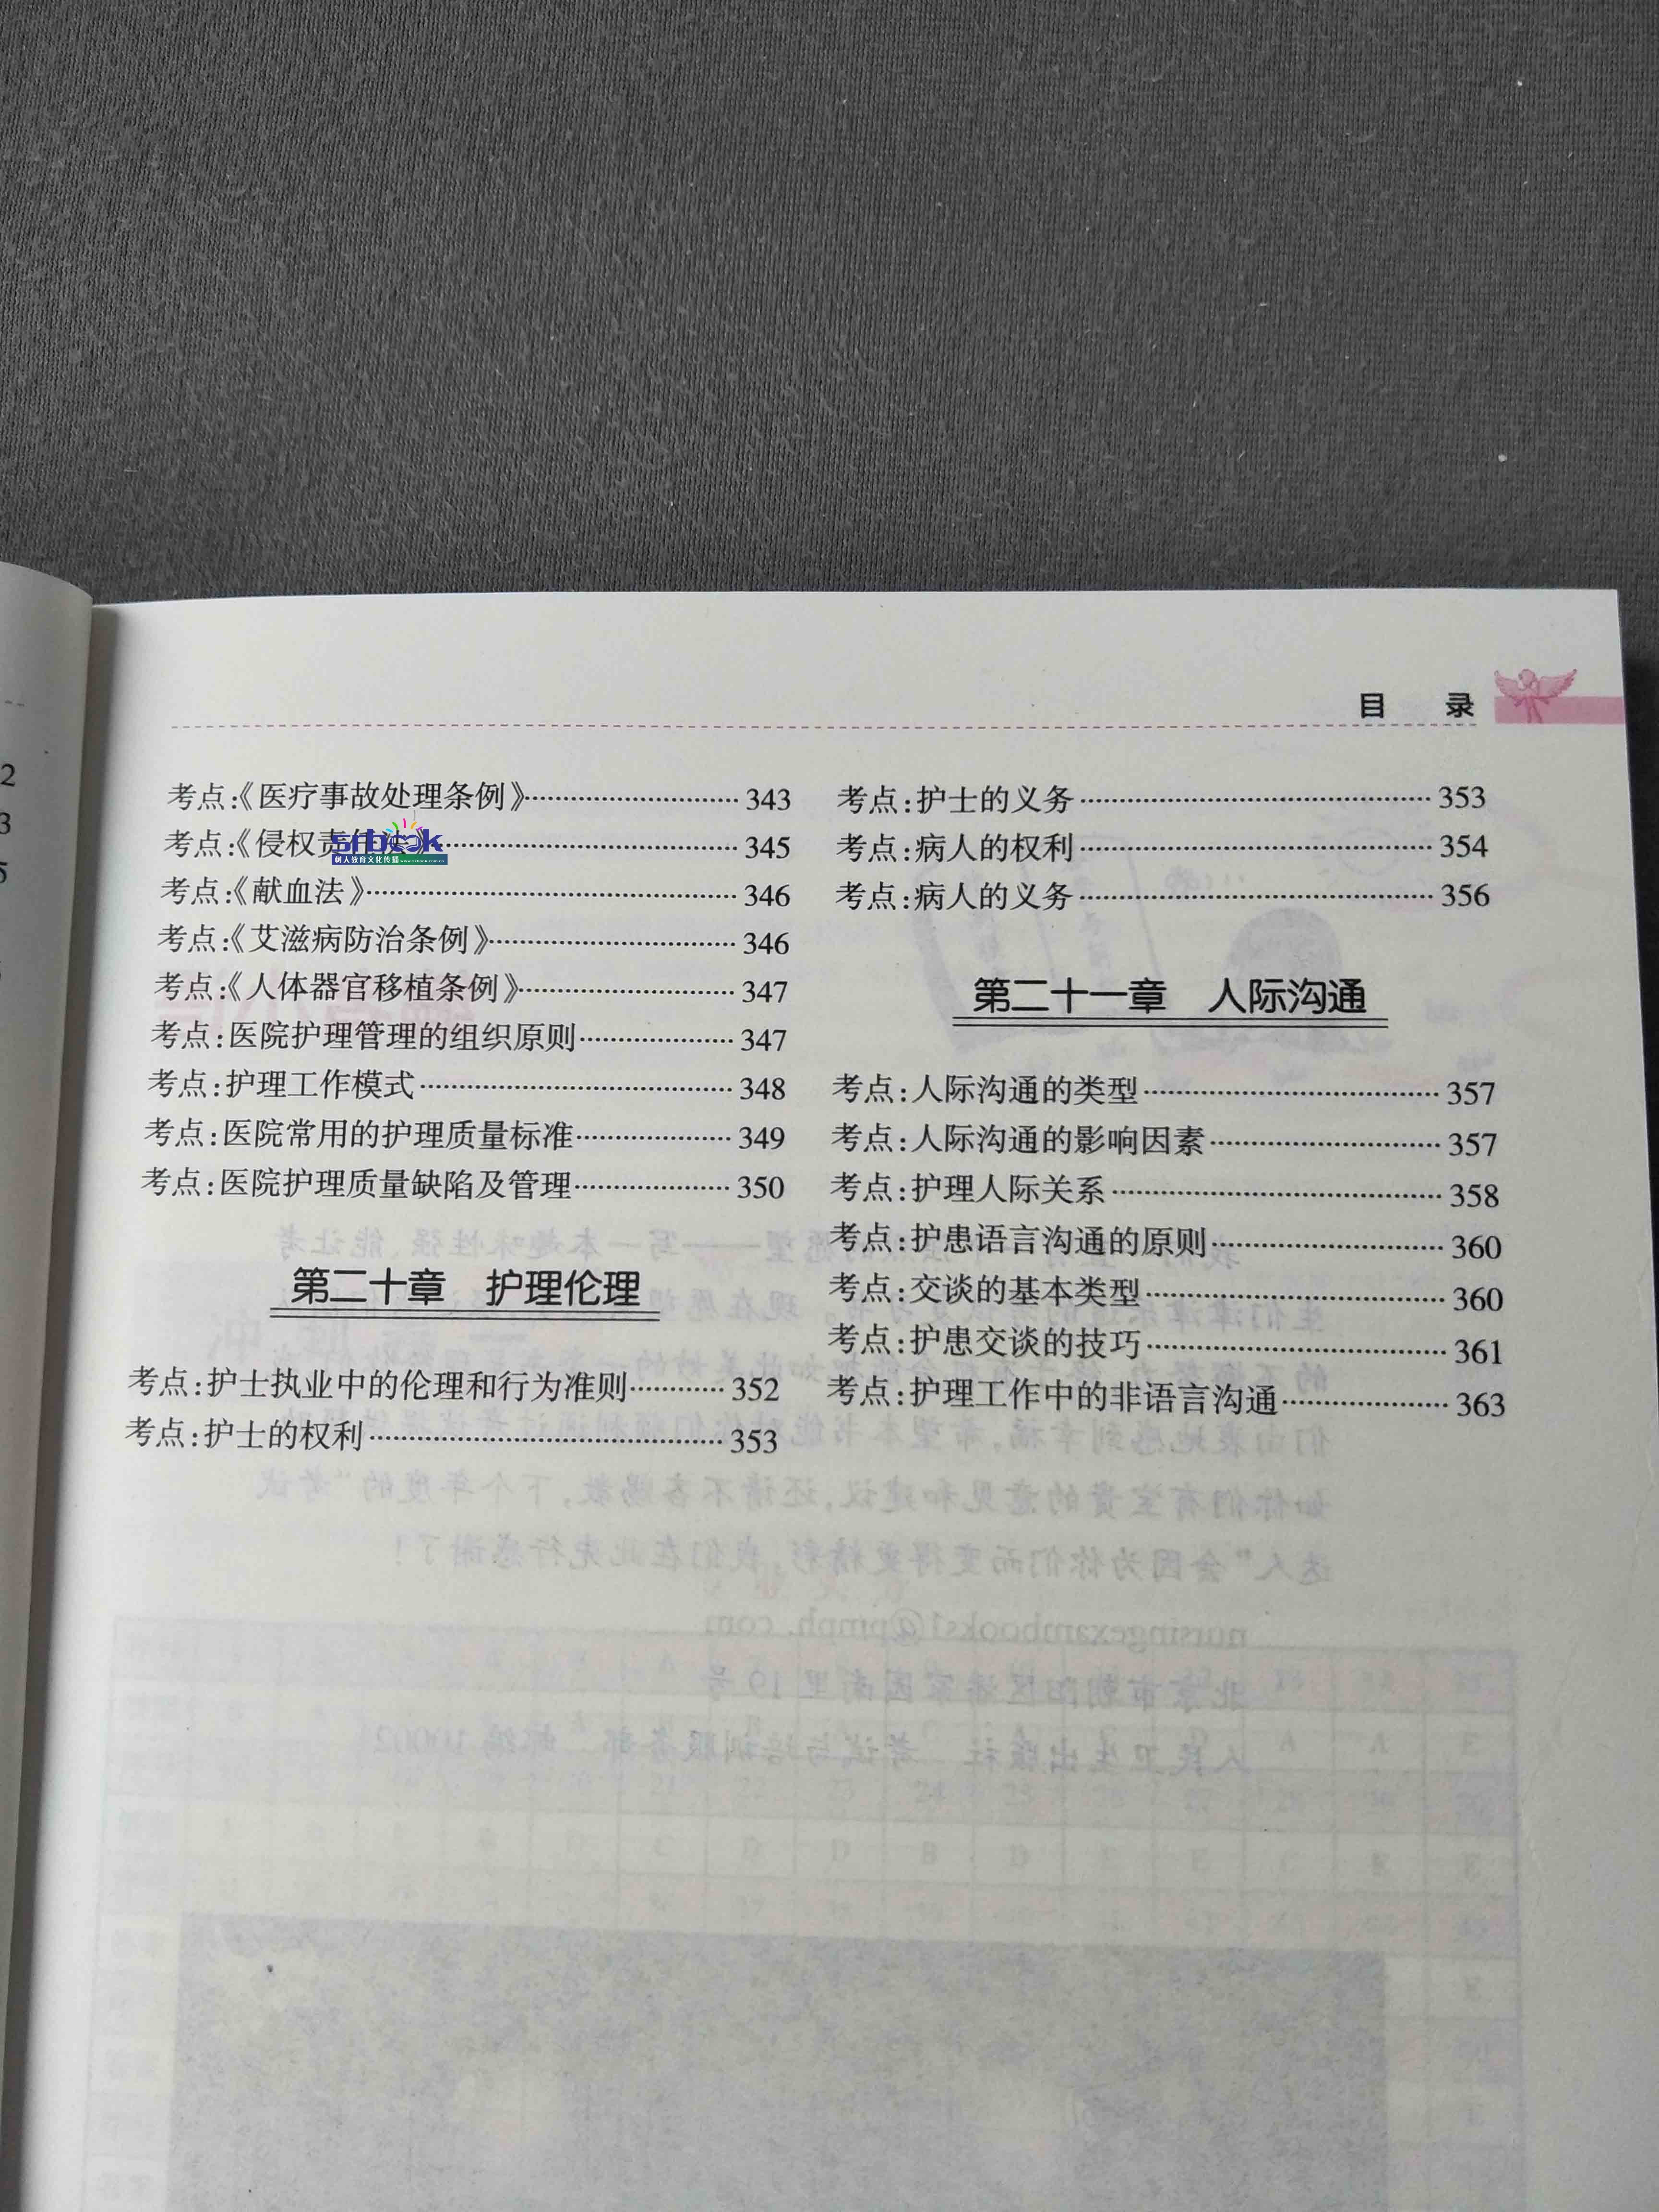 目 录
考点:《医疗事故处理条例》 343
考点:《侵权责任法》 345
srbook
树人教育文化传播 www.srbook.com.cn
考点:《献血法》 346
考点:《艾滋病防治条例》 346
考点:《人体器官移植条例》 347
考点:医院护理管理的组织原则 347
考点:护理工作模式 348
考点:医院常用的护理质量标准 349
考点:医院护理质量缺陷及管理 350
第二十章 护理伦理
考点:护士执业中的伦理和行为准则 352
考点:护士的权利 353
考点:护士的义务 353
考点:病人的权利 354
考点:病人的义务 356
第二十一章 人际沟通
考点:人际沟通的类型 357
考点:人际沟通的影响因素 357
考点:护理人际关系 358
考点:护患语言沟通的原则 360
考点:交谈的基本类型 360
考点:护患交谈的技巧 361
考点:护理工作中的非语言沟通 363